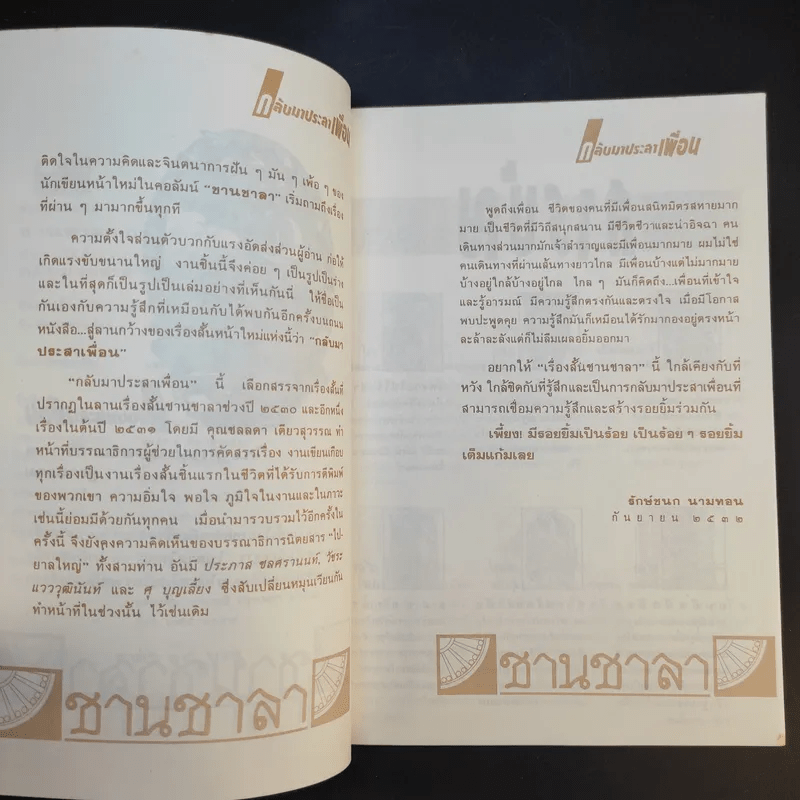 กลับมาประสาเพื่อน
ติดใจในความคิดและจินตนาการฝัน ๆ มัน ๆ เพ้อ ๆ ของ
นักเขียนหน้าใหม่ในคอลัมน์ “ชานชาลา” เริ่มถามถึงเรื่อง
ที่ผ่าน ๆ มามากขึ้นทุกที
ความตั้งใจส่วนตัวบวกกับแรงอัดส่งส่วนผู้อ่าน ก่อให้
เกิดแรงขับขนานใหญ่ งานชิ้นนี้จึงค่อย ๆ เป็นรูปเป็นร่าง
และในที่สุดก็เป็นรูปเป็นเล่มอย่างที่เห็นกันนี่ ให้ชื่อเป็น
กันเองกับความรู้สึกที่เหมือนกับได้พบกันอีกครั้งบนถนน
หนังสือ...สู่ลานกว้างของเรื่องสั้นหน้าใหม่แห่งนี้ว่า “กลับมา
ประสาเพื่อน”
“กลับมาประสาเพื่อน” นี้ เลือกสรรจากเรื่องสั้นที่
ปรากฏในลานเรื่องสั้นชานชาลาช่วงปี ๒๕๓๐ และอีกหนึ่ง
เรื่องในต้นปี ๒๕๓๑ โดยมี คุณชลลดา เตียวสุวรรณ ทำ
หน้าที่บรรณาธิการผู้ช่วยในการคัดสรรเรื่อง งานเขียนเกือบ
ทุกเรื่องเป็นงานเรื่องสั้นชิ้นแรกในชีวิตที่ได้รับการตีพิมพ์
ของพวกเขา ความอิ่มใจ พอใจ ภูมิใจในงานและในภาวะ
เช่นนี้ย่อมมีด้วยกันทุกคน เมื่อนำมารวบรวมไว้อีกครั้งใน
ครั้งนี้ จึงยังคงความคิดเห็นของบรรณาธิการนิตยสาร “ไป-
ยาลใหญ่” ทั้งสามท่าน อันมี ประภาส ชลศรานนท์, วัชระ
แวววุฒินันท์ และ ศุ บุญเลี้ยง ซึ่งสับเปลี่ยนหมุนเวียนกัน
ทำหน้าที่ในช่วงนั้น ไว้เช่นเดิม
ชานชาลา
กลับมาประสาเพื่อน
พูดถึงเพื่อน ชีวิตของคนที่มีเพื่อนสนิทมิตรสหายมาก
มาย เป็นชีวิตที่มีวิถีสนุกสนาน มีชีวิตชีวาและน่าอิจฉา คน
เดินทางส่วนมากมักเจ้าสำราญและมีเพื่อนมากมาย ผมไม่ใช่
คนเดินทางที่ผ่านเส้นทางยาวไกล มีเพื่อนบ้างแต่ไม่มากมาย
บ้างอยู่ใกล้บ้างอยู่ไกล ไกล ๆ มันก็คิดถึง...เพื่อนที่เข้าใจ
และรู้อารมณ์ มีความรู้สึกตรงกันและตรงใจ เมื่อมีโอกาส
พบปะพูดคุย ความรู้สึกมันก็เหมือนได้รักมากองอยู่ตรงหน้า
ละล้าละลังแต่ก็ไม่ลืมเผลอยิ้มออกมา
อยากให้ “เรื่องสั้นชานชาลา” นี้ ใกล้เคียงกับที่
หวัง ใกล้ชิดกับที่รู้สึกและเป็นการกลับมาประสาเพื่อนที่
สามารถเชื่อมความรู้สึกและสร้างรอยยิ้มร่วมกัน
เพี้ยง! มีรอยยิ้มเป็นร้อย เป็นร้อย ๆ รอยยิ้ม
เติมแก้มเลย
รักษ์ชนก นามทอน
กันยายน ๒๕๓๒
ชานชาลา